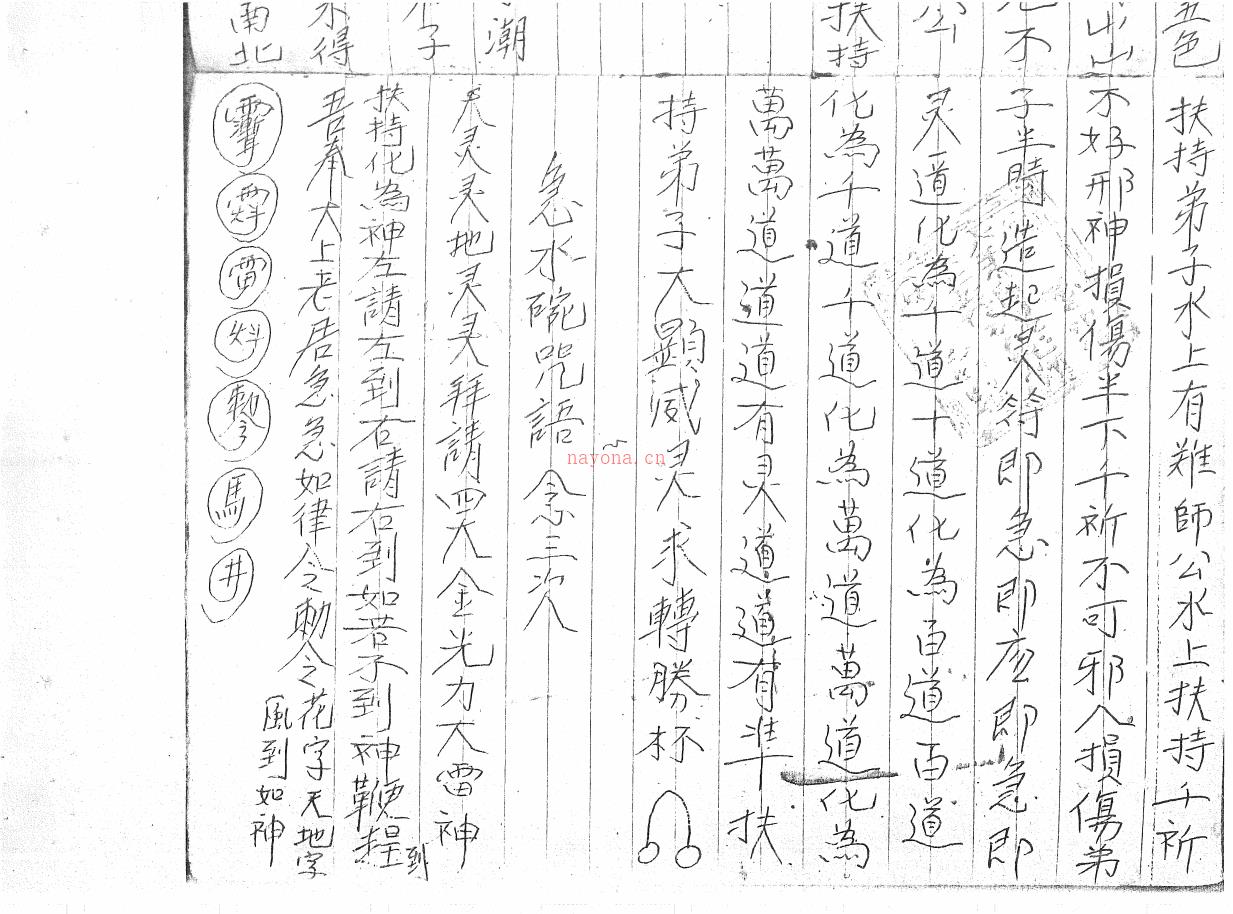 五色
出山
不
扶持
潮
子
不得
南北
扶持弟子水上有难師公水上扶持千祈
不好邪神損傷半下千祈不可邪人損傷弟
子半時造起灵符即急即应即急即
灵一道化為十道十道化為百道百道
化為千道千道化為萬道萬道化為
萬萬道道道有灵道道有準扶
持弟子大顯威灵求轉勝杯
急水碗咒語念三次
天灵灵地灵灵拜請四大金光力大雷神
扶持化為神左請左到右請右到如若不到神鞭趕到
吾奉太上老君急急如律令之勅令花字天地字
風到如神
雷
馬
井
nayona.cn